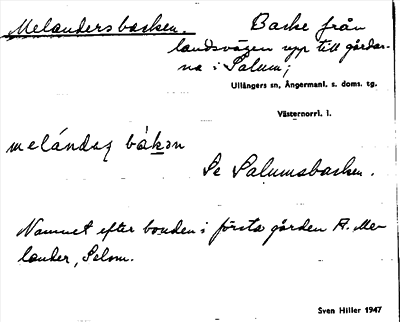 Melandersbacken. Backe från
landsvägen upp till gårdar-
na i Salum;
Ullångers sn, Ångermanl. s. doms. tg.
Västernorrl. l.
melándsȩ bákən
Se Salumsbacken.
Namnet efter bonden i första gården A. Me-
lander, Salom.
Sven Hiller 1947